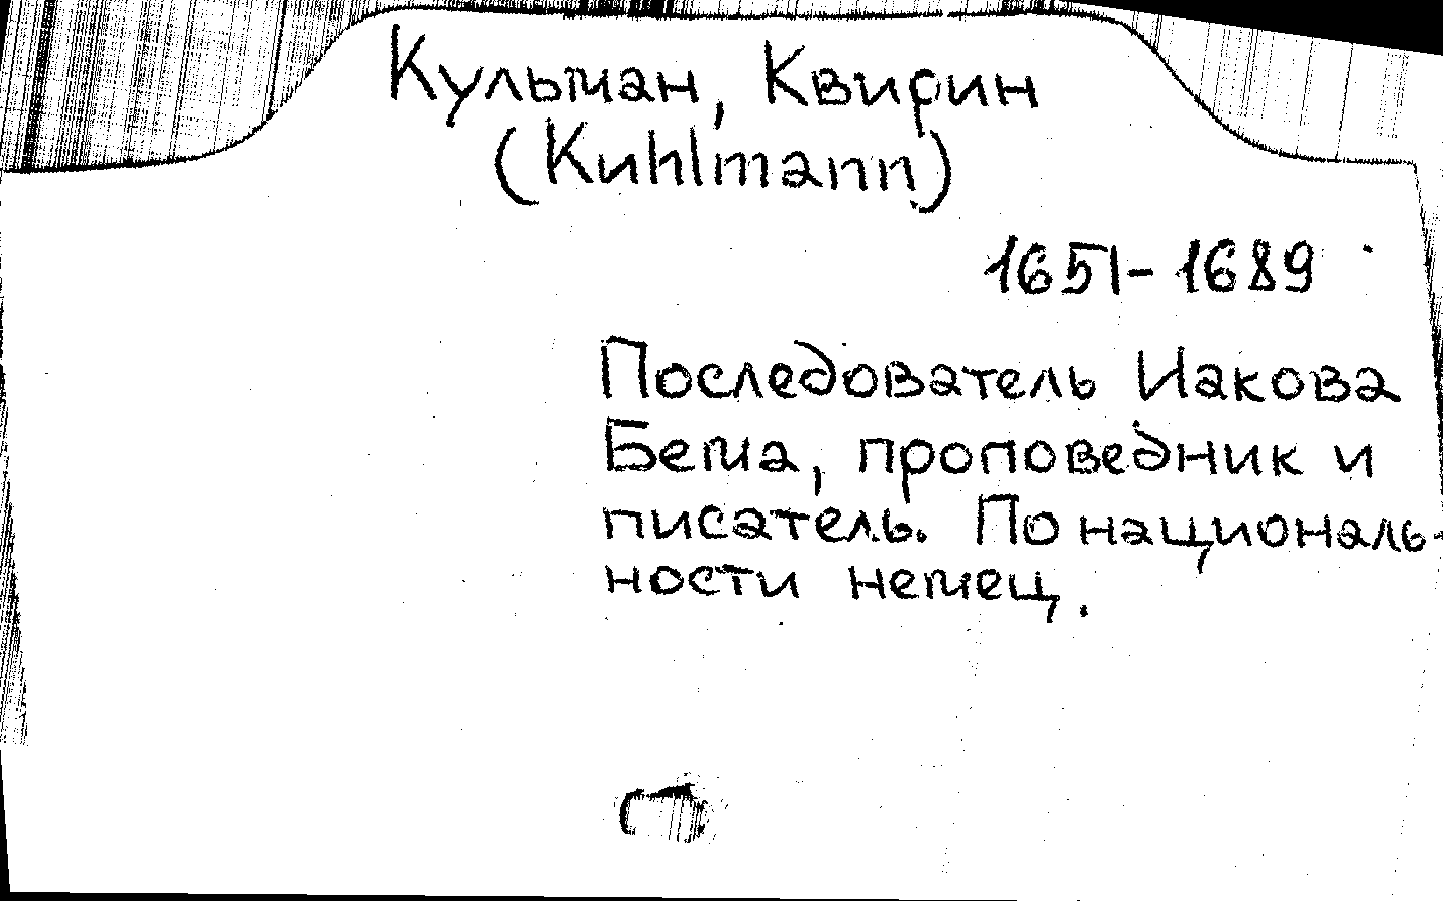 Кульман, Квирин
(Kuhlmann)
1651-1689
Последователь Иакова
Бема, проповедник и
писатель. По националь-
ности немец.